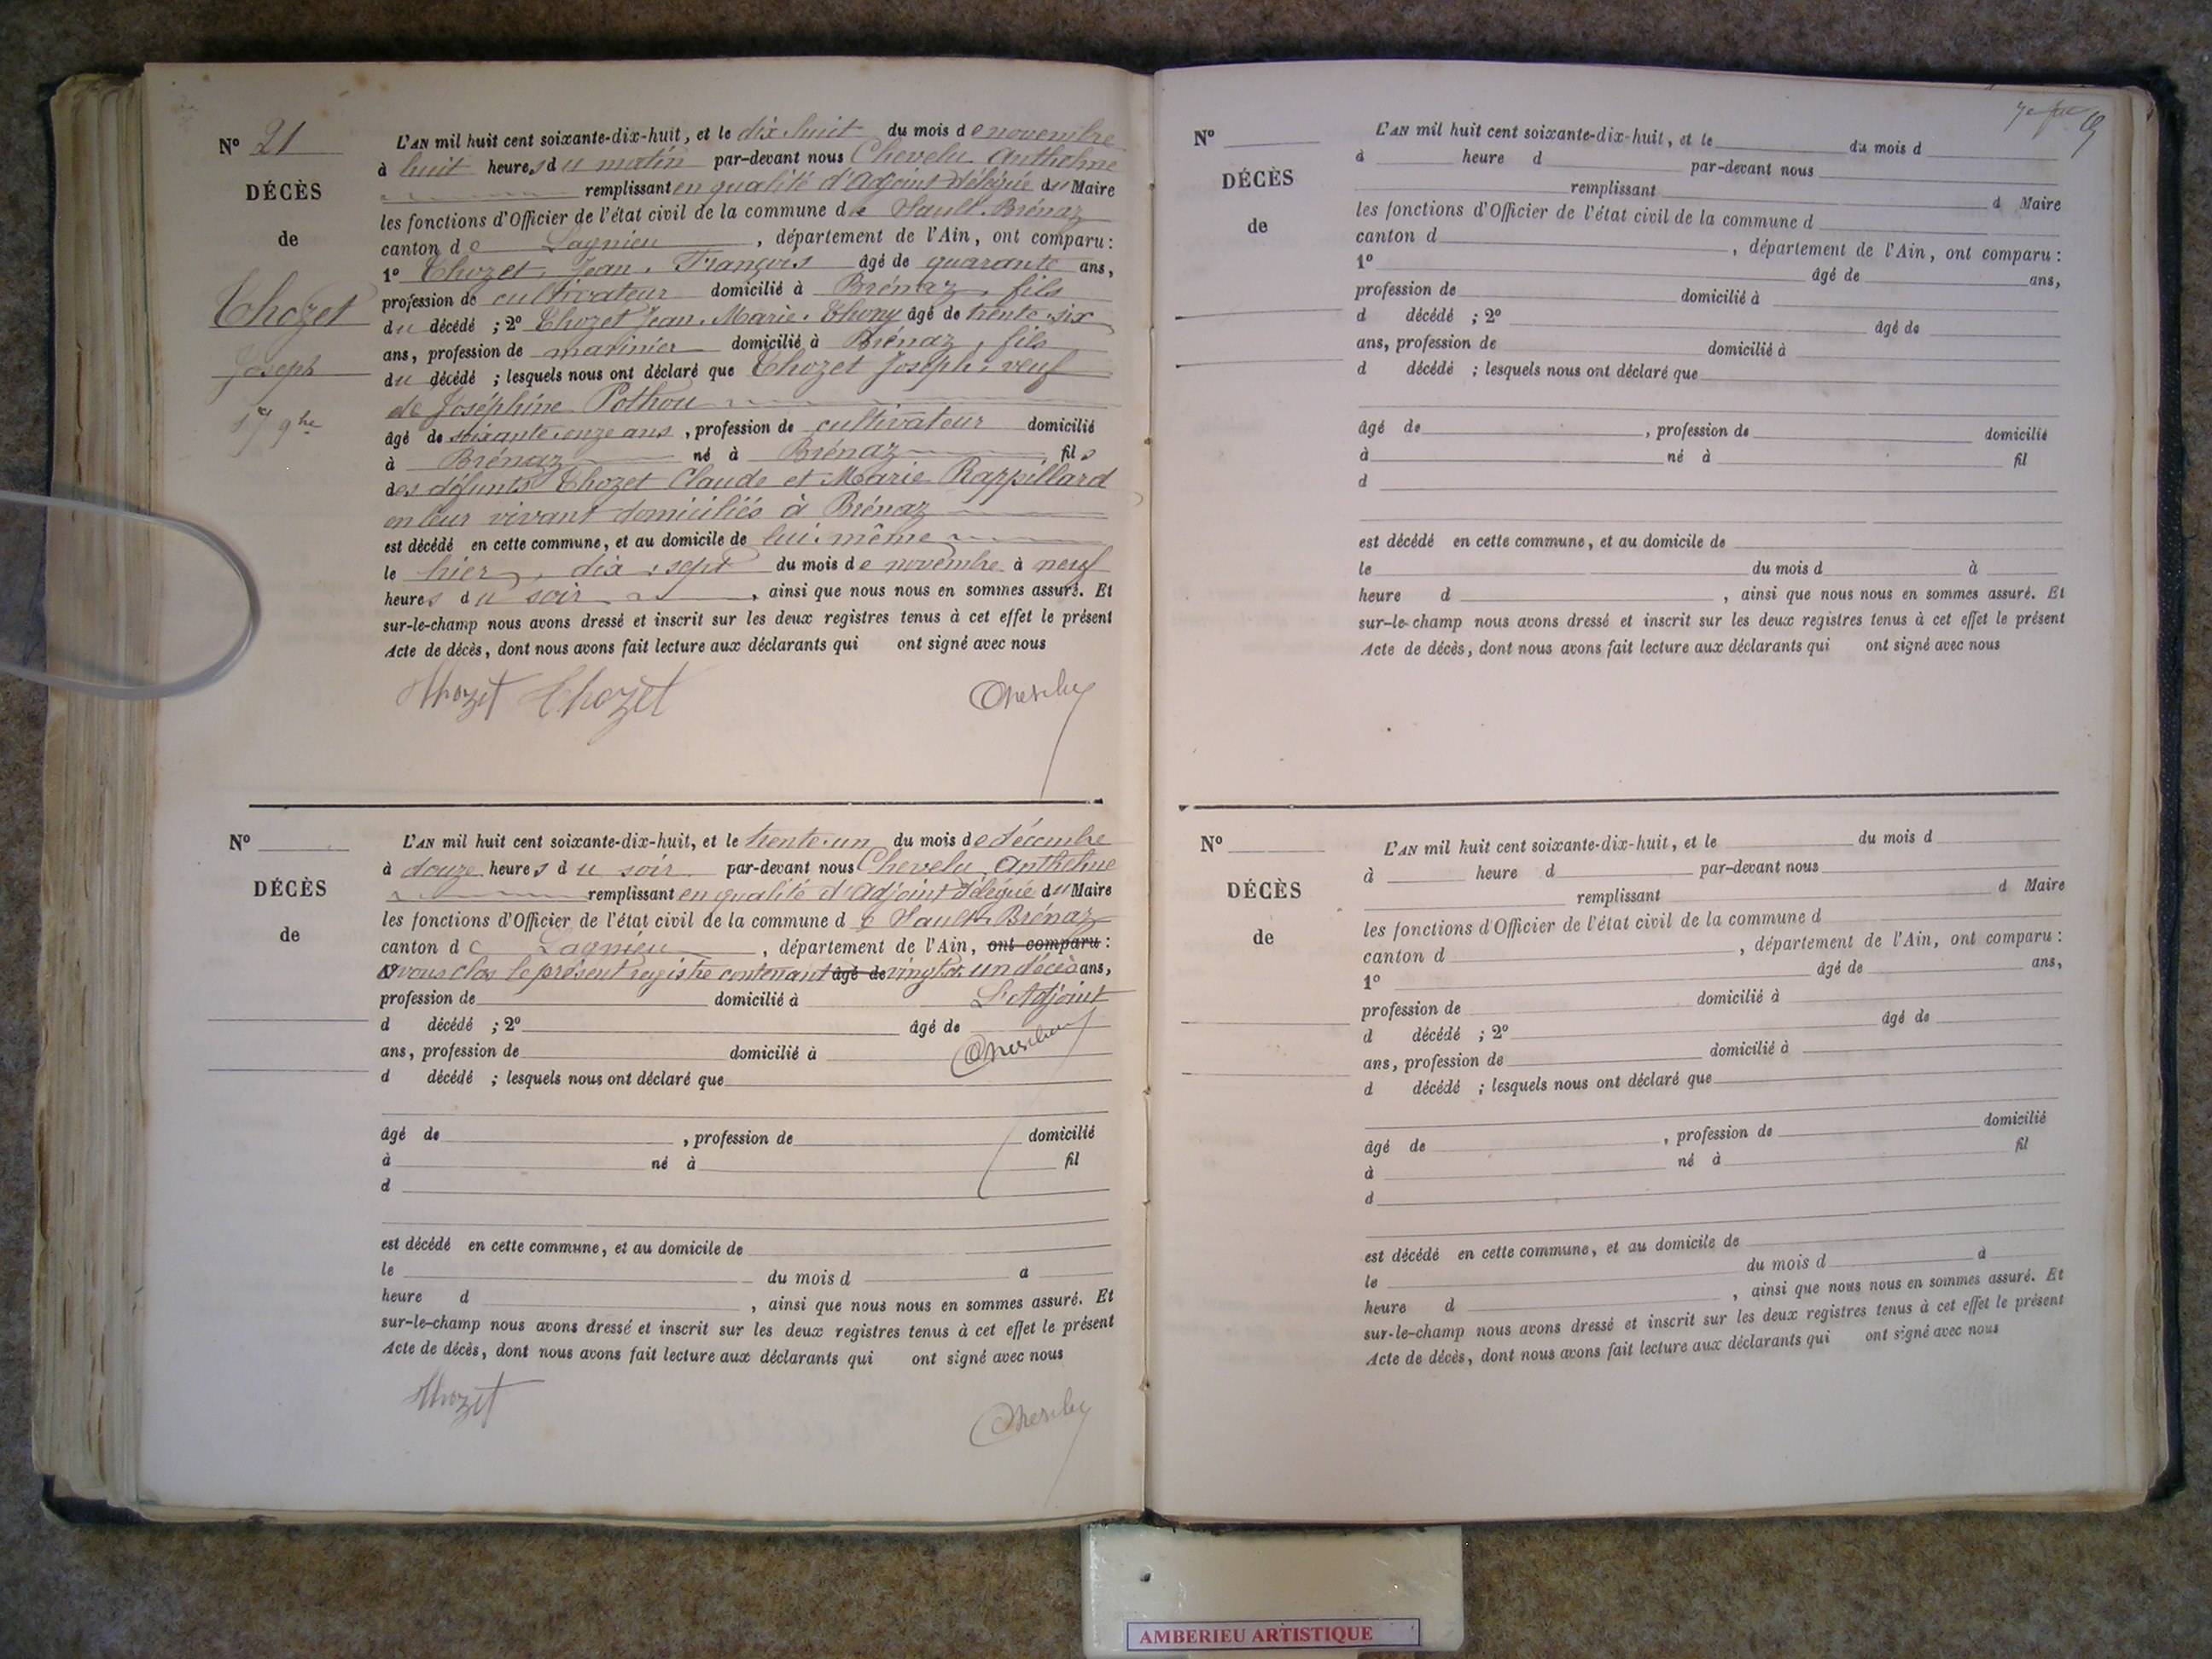 N° 21
DÉCÈS
de
Thozet
Joseph
17 9bre
L'AN mil huit cent soixante-dix-huit, et le dix-huit du mois de novembre
à huit heures du matin par-devant nous Chevelu Anthelme
remplissant en qualité d'Adjoint délégué du Maire
les fonctions d'Officier de l'état civil de la commune de Sault-Brénaz
canton de Lagnieu, département de l'Ain, ont comparu :
1° Thozet Jean-François âgé de quarante ans,
profession de cultivateur domicilié à Brénaz, fils
du décédé ; 2° Thozet Jean-Marie-Thony âgé de trente-six
ans, profession de marinier domicilié à Brénaz, fils
du décédé ; lesquels nous ont déclaré que Thozet Joseph, veuf
de Joséphine Pothou
âgé de soixante-onze ans, profession de cultivateur domicilié
à Brénaz né à Brénaz, fils
des défunts Thozet Claude et Marie Rappillard
en leur vivant domiciliés à Brénaz
est décédé en cette commune, et au domicile de lui-même
le hier, dix-sept du mois de novembre à neuf
heures du soir, ainsi que nous nous en sommes assuré. Et
sur-le-champ nous avons dressé et inscrit sur les deux registres tenus à cet effet le présent
Acte de décès, dont nous avons fait lecture aux déclarants qui ont signé avec nous
Thozet Thozet Chevelu
N°
DÉCÈS
de
L'AN mil huit cent soixante-dix-huit, et le trente-un du mois de décembre
à douze heures du soir par-devant nous Chevelu Anthelme
remplissant en qualité d'Adjoint délégué du Maire
les fonctions d'Officier de l'état civil de la commune de Sault-Brénaz
canton de Lagnieu, département de l'Ain, ont comparu :
avons clos le présent registre contenant âgé de vingt et un décès ans,
profession de domicilié à L'Adjoint
d décédé ; 2° âgé de
ans, profession de domicilié à Chevelu
d décédé ; lesquels nous ont déclaré que
âgé de , profession de domicilié
à né à fil
d
est décédé en cette commune, et au domicile de
le du mois d à
heure d , ainsi que nous nous en sommes assuré. Et
sur-le-champ nous avons dressé et inscrit sur les deux registres tenus à cet effet le présent
Acte de décès, dont nous avons fait lecture aux déclarants qui ont signé avec nous
Thozet Chevelu
N°
DÉCÈS
de
L'AN mil huit cent soixante-dix-huit, et le du mois d
à heure d par-devant nous
remplissant d Maire
les fonctions d'Officier de l'état civil de la commune d
canton d , département de l'Ain, ont comparu :
1° âgé de ans,
profession de domicilié à
d décédé ; 2° âgé de
ans, profession de domicilié à
d décédé ; lesquels nous ont déclaré que
âgé de , profession de domicilié
à né à fil
d
est décédé en cette commune, et au domicile de
le du mois d à
heure d , ainsi que nous nous en sommes assuré. Et
sur-le-champ nous avons dressé et inscrit sur les deux registres tenus à cet effet le présent
Acte de décès, dont nous avons fait lecture aux déclarants qui ont signé avec nous
N°
DÉCÈS
de
L'AN mil huit cent soixante-dix-huit, et le du mois d
à heure d par-devant nous
remplissant d Maire
les fonctions d'Officier de l'état civil de la commune d
canton d , département de l'Ain, ont comparu :
1° âgé de ans,
profession de domicilié à
d décédé ; 2° âgé de
ans, profession de domicilié à
d décédé ; lesquels nous ont déclaré que
âgé de , profession de domicilié
à né à fil
d
est décédé en cette commune, et au domicile de
le du mois d à
heure d , ainsi que nous nous en sommes assuré. Et
sur-le-champ nous avons dressé et inscrit sur les deux registres tenus à cet effet le présent
Acte de décès, dont nous avons fait lecture aux déclarants qui ont signé avec nous
AMBERIEU ARTISTIQUE